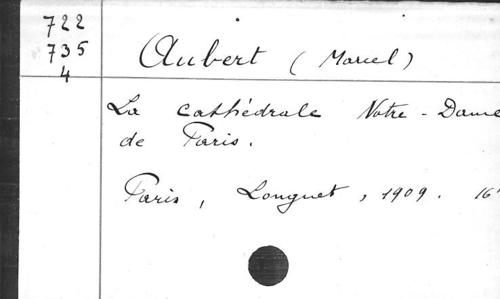 722
735
4
Aubert (Marcel)
La cathédrale Notre-Dame
de Paris.
Paris, Longuet, 1909. 16°